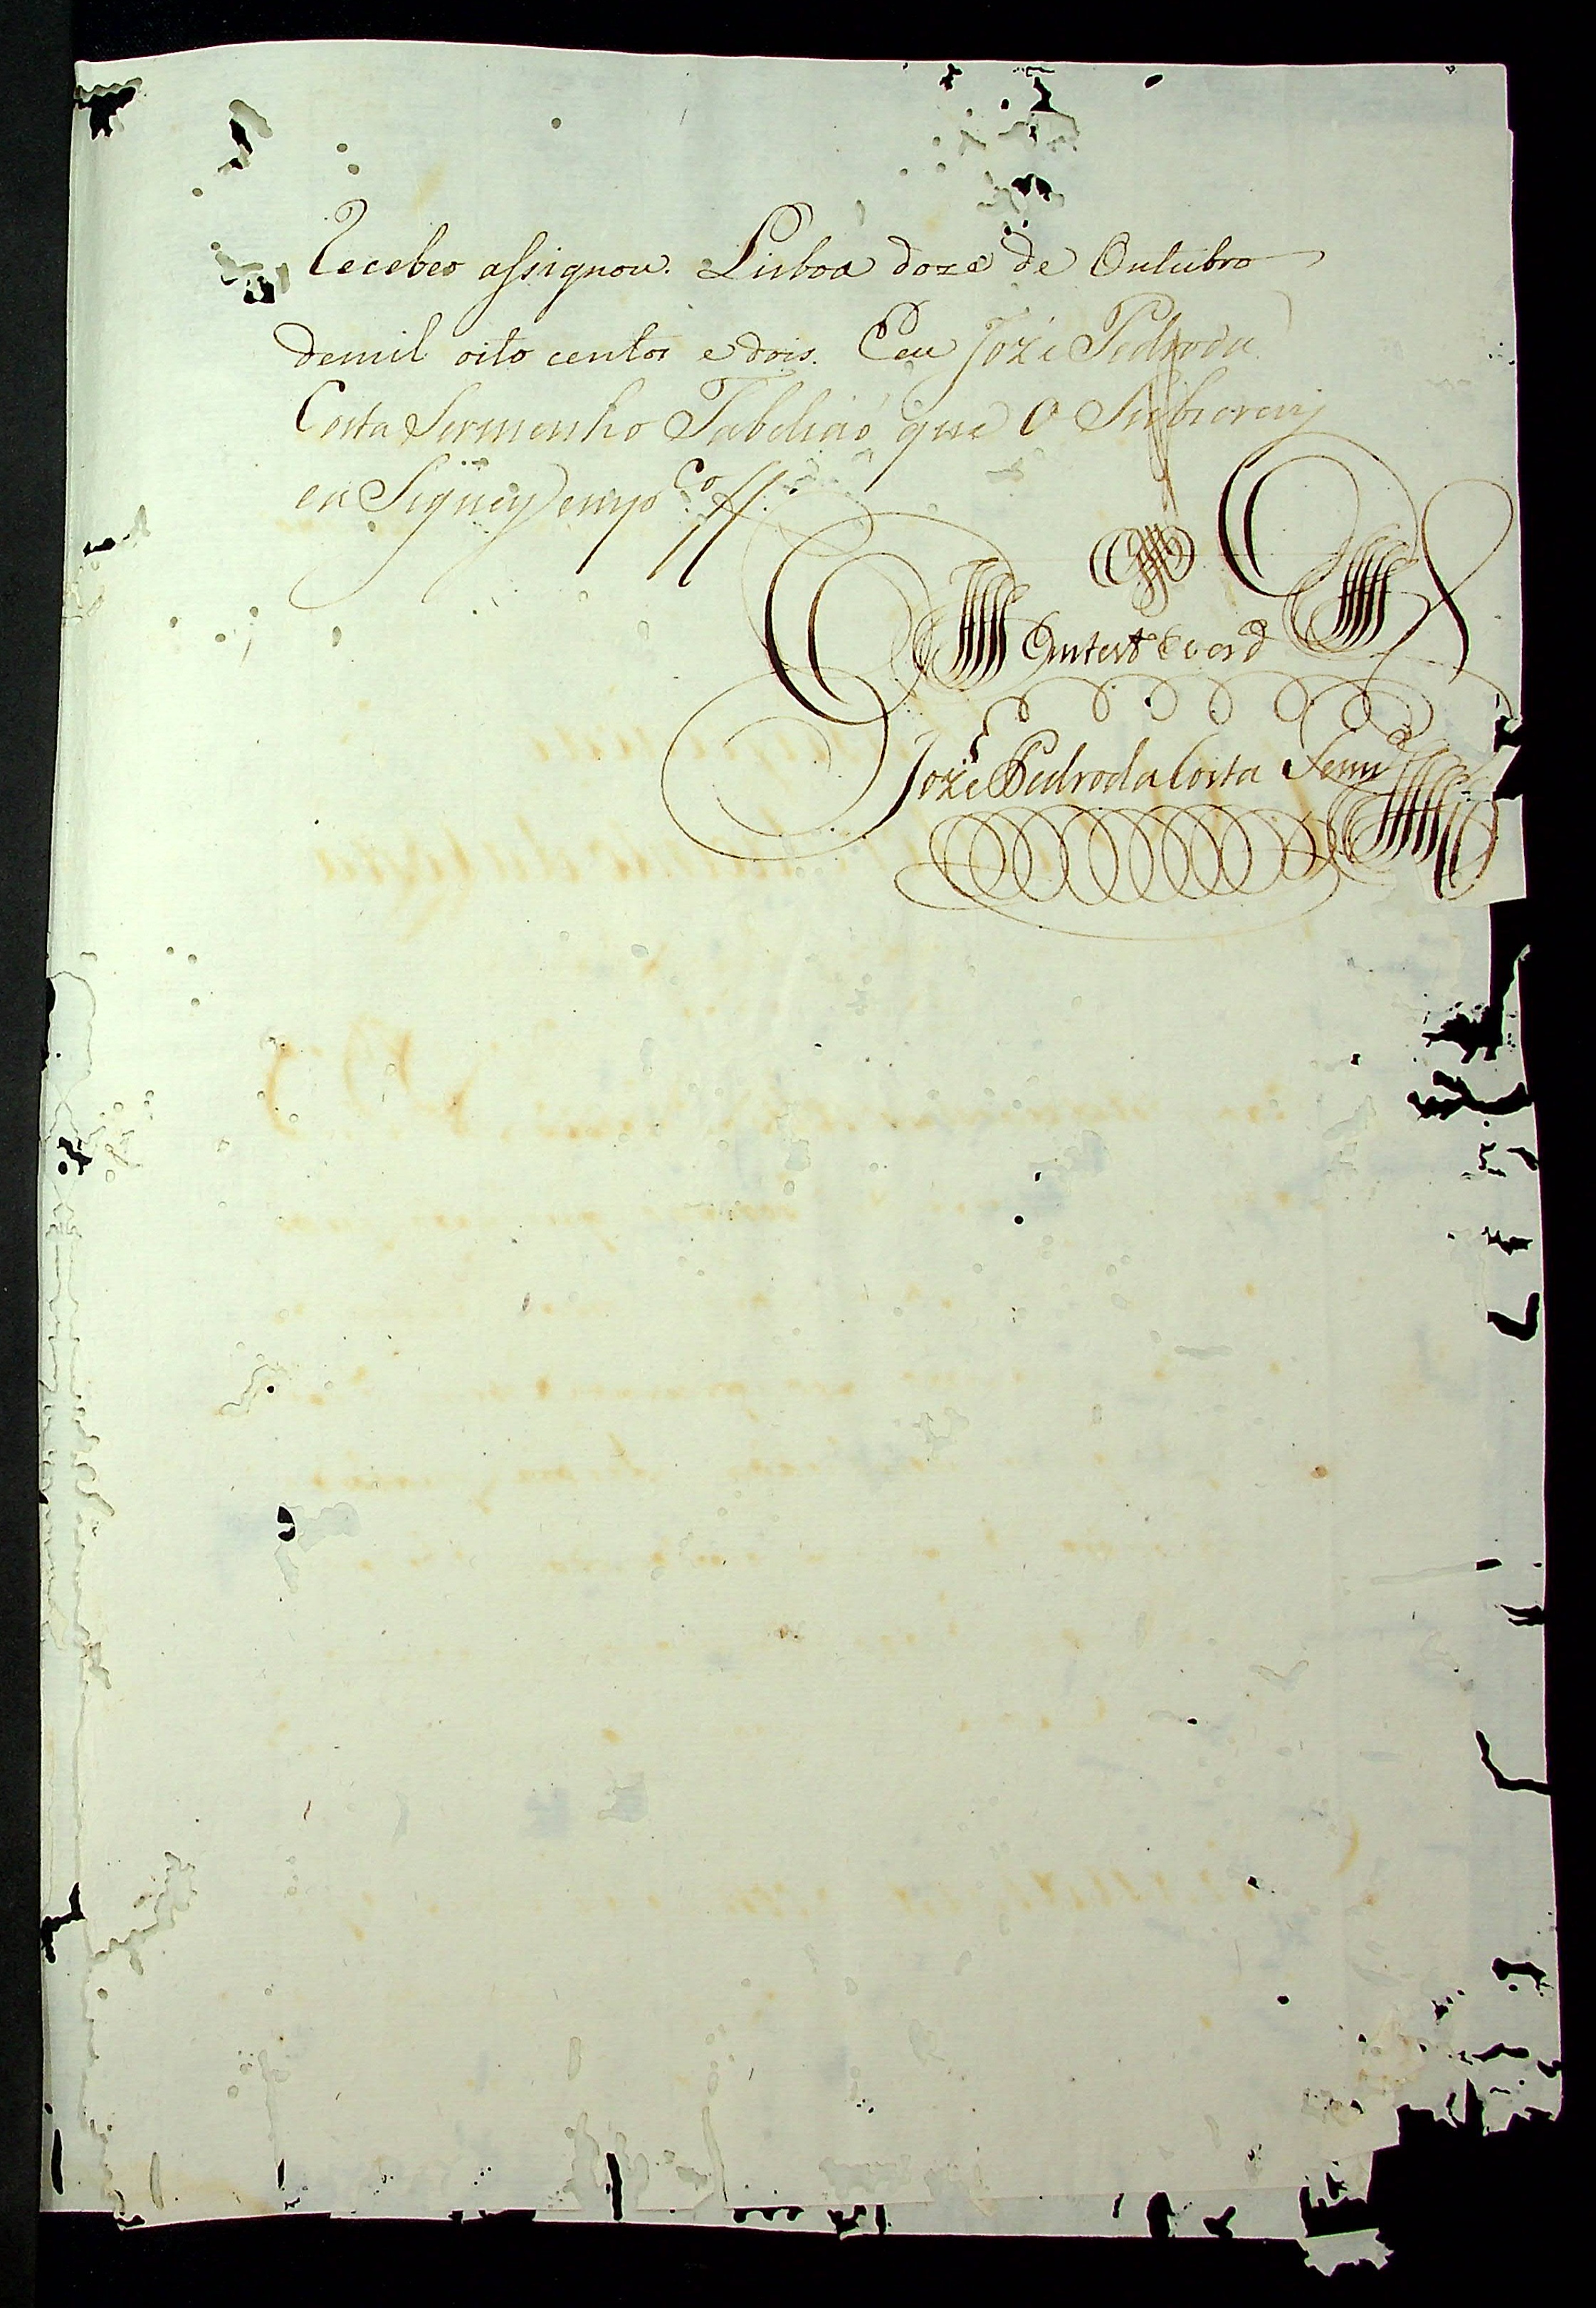 Recebeo assignou. Lisboa doze de Outubro
demil oito centos e dois. Eeu Joze Pedro da
Costa Sermenho Tabeliaó que o Subscrevy
ea Signey empco
Joze Pedro da Costa Serm